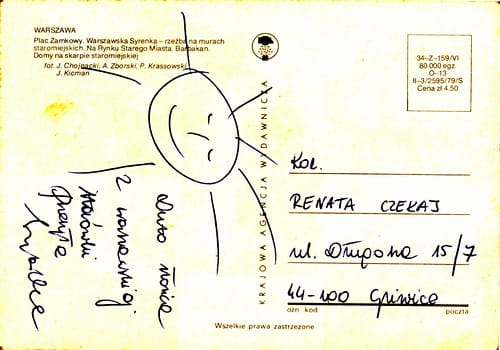 WARSZAWA
Plac Zamkowy. Warszawska Syrenka – rzeźba na murach
staromiejskich. Na Rynku Starego Miasta. Barbakan.
Domy na skarpie staromiejskiej
fot. J. Chojnacki, A. Zborski, P. Krassowski,
J. Kicman
34–Z–159/VI
80 000 egz.
O–13
II–3/2595/79/S
Cena zł 4,50
KRAJOWA AGENCJA WYDAWNICZA
Dużo słońca
z warszawskiej
starówki
przesyła
Kol.
RENATA CZEKAJ
ul. Długosza 15/7
44-100 Gliwice
ozn kod poczta
Wszelkie prawa zastrzeżone